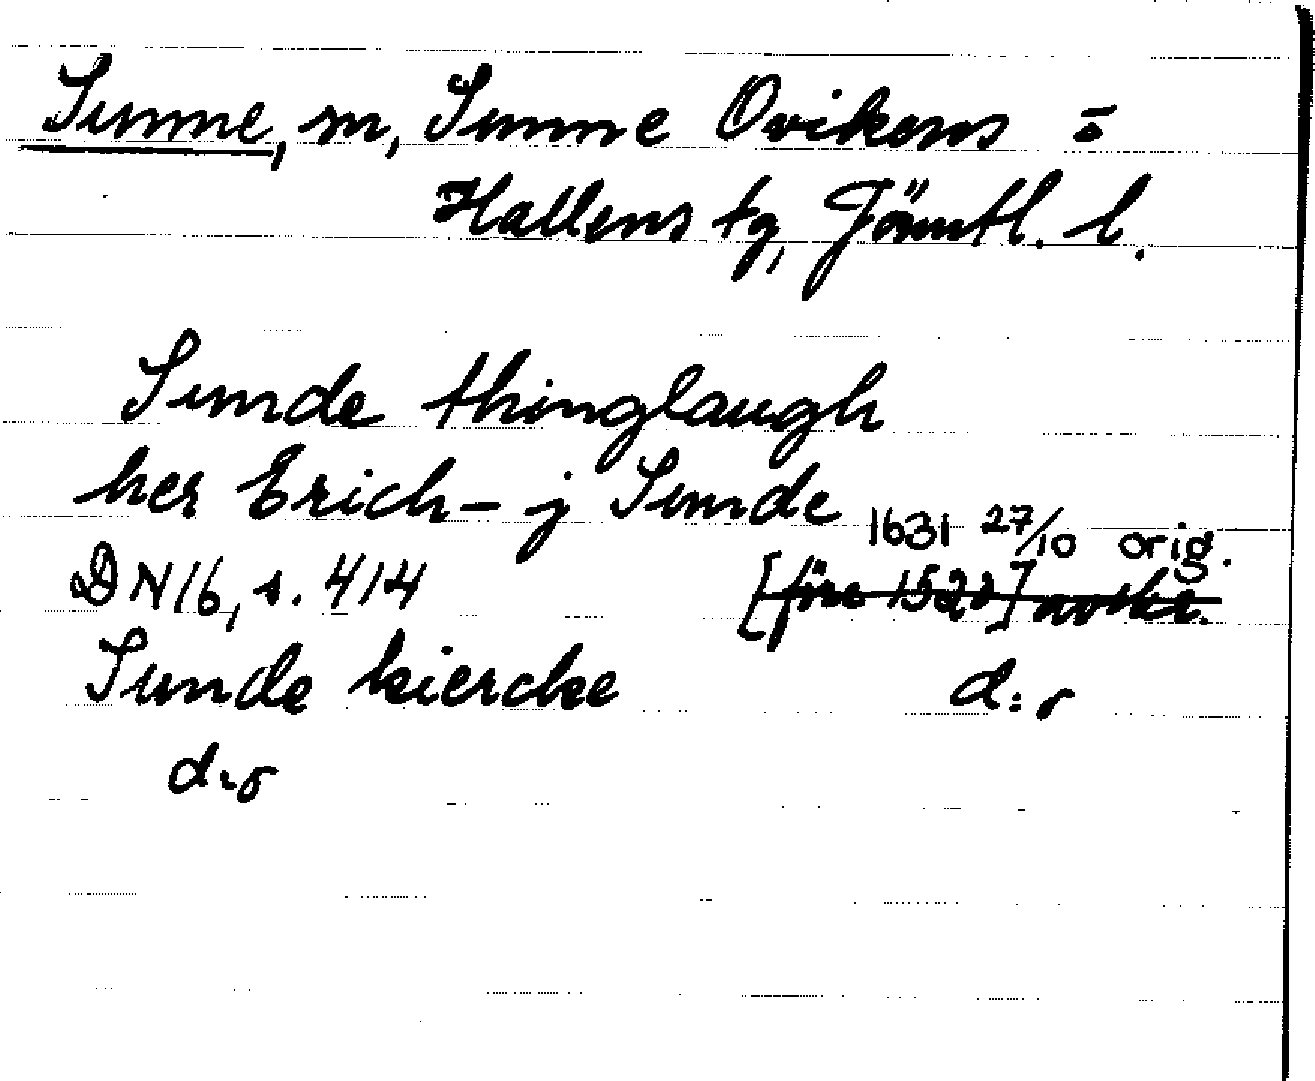 Sunne, sn, Sunne Ovikens =
Hallens tg, Jämtl. l.
Sunde thinglaugh
her Erich - j Sunde
1631 27/10 orig.
DN16, s. 414 [före 1520] avskr.
Sunde kiercke d:o
d:o